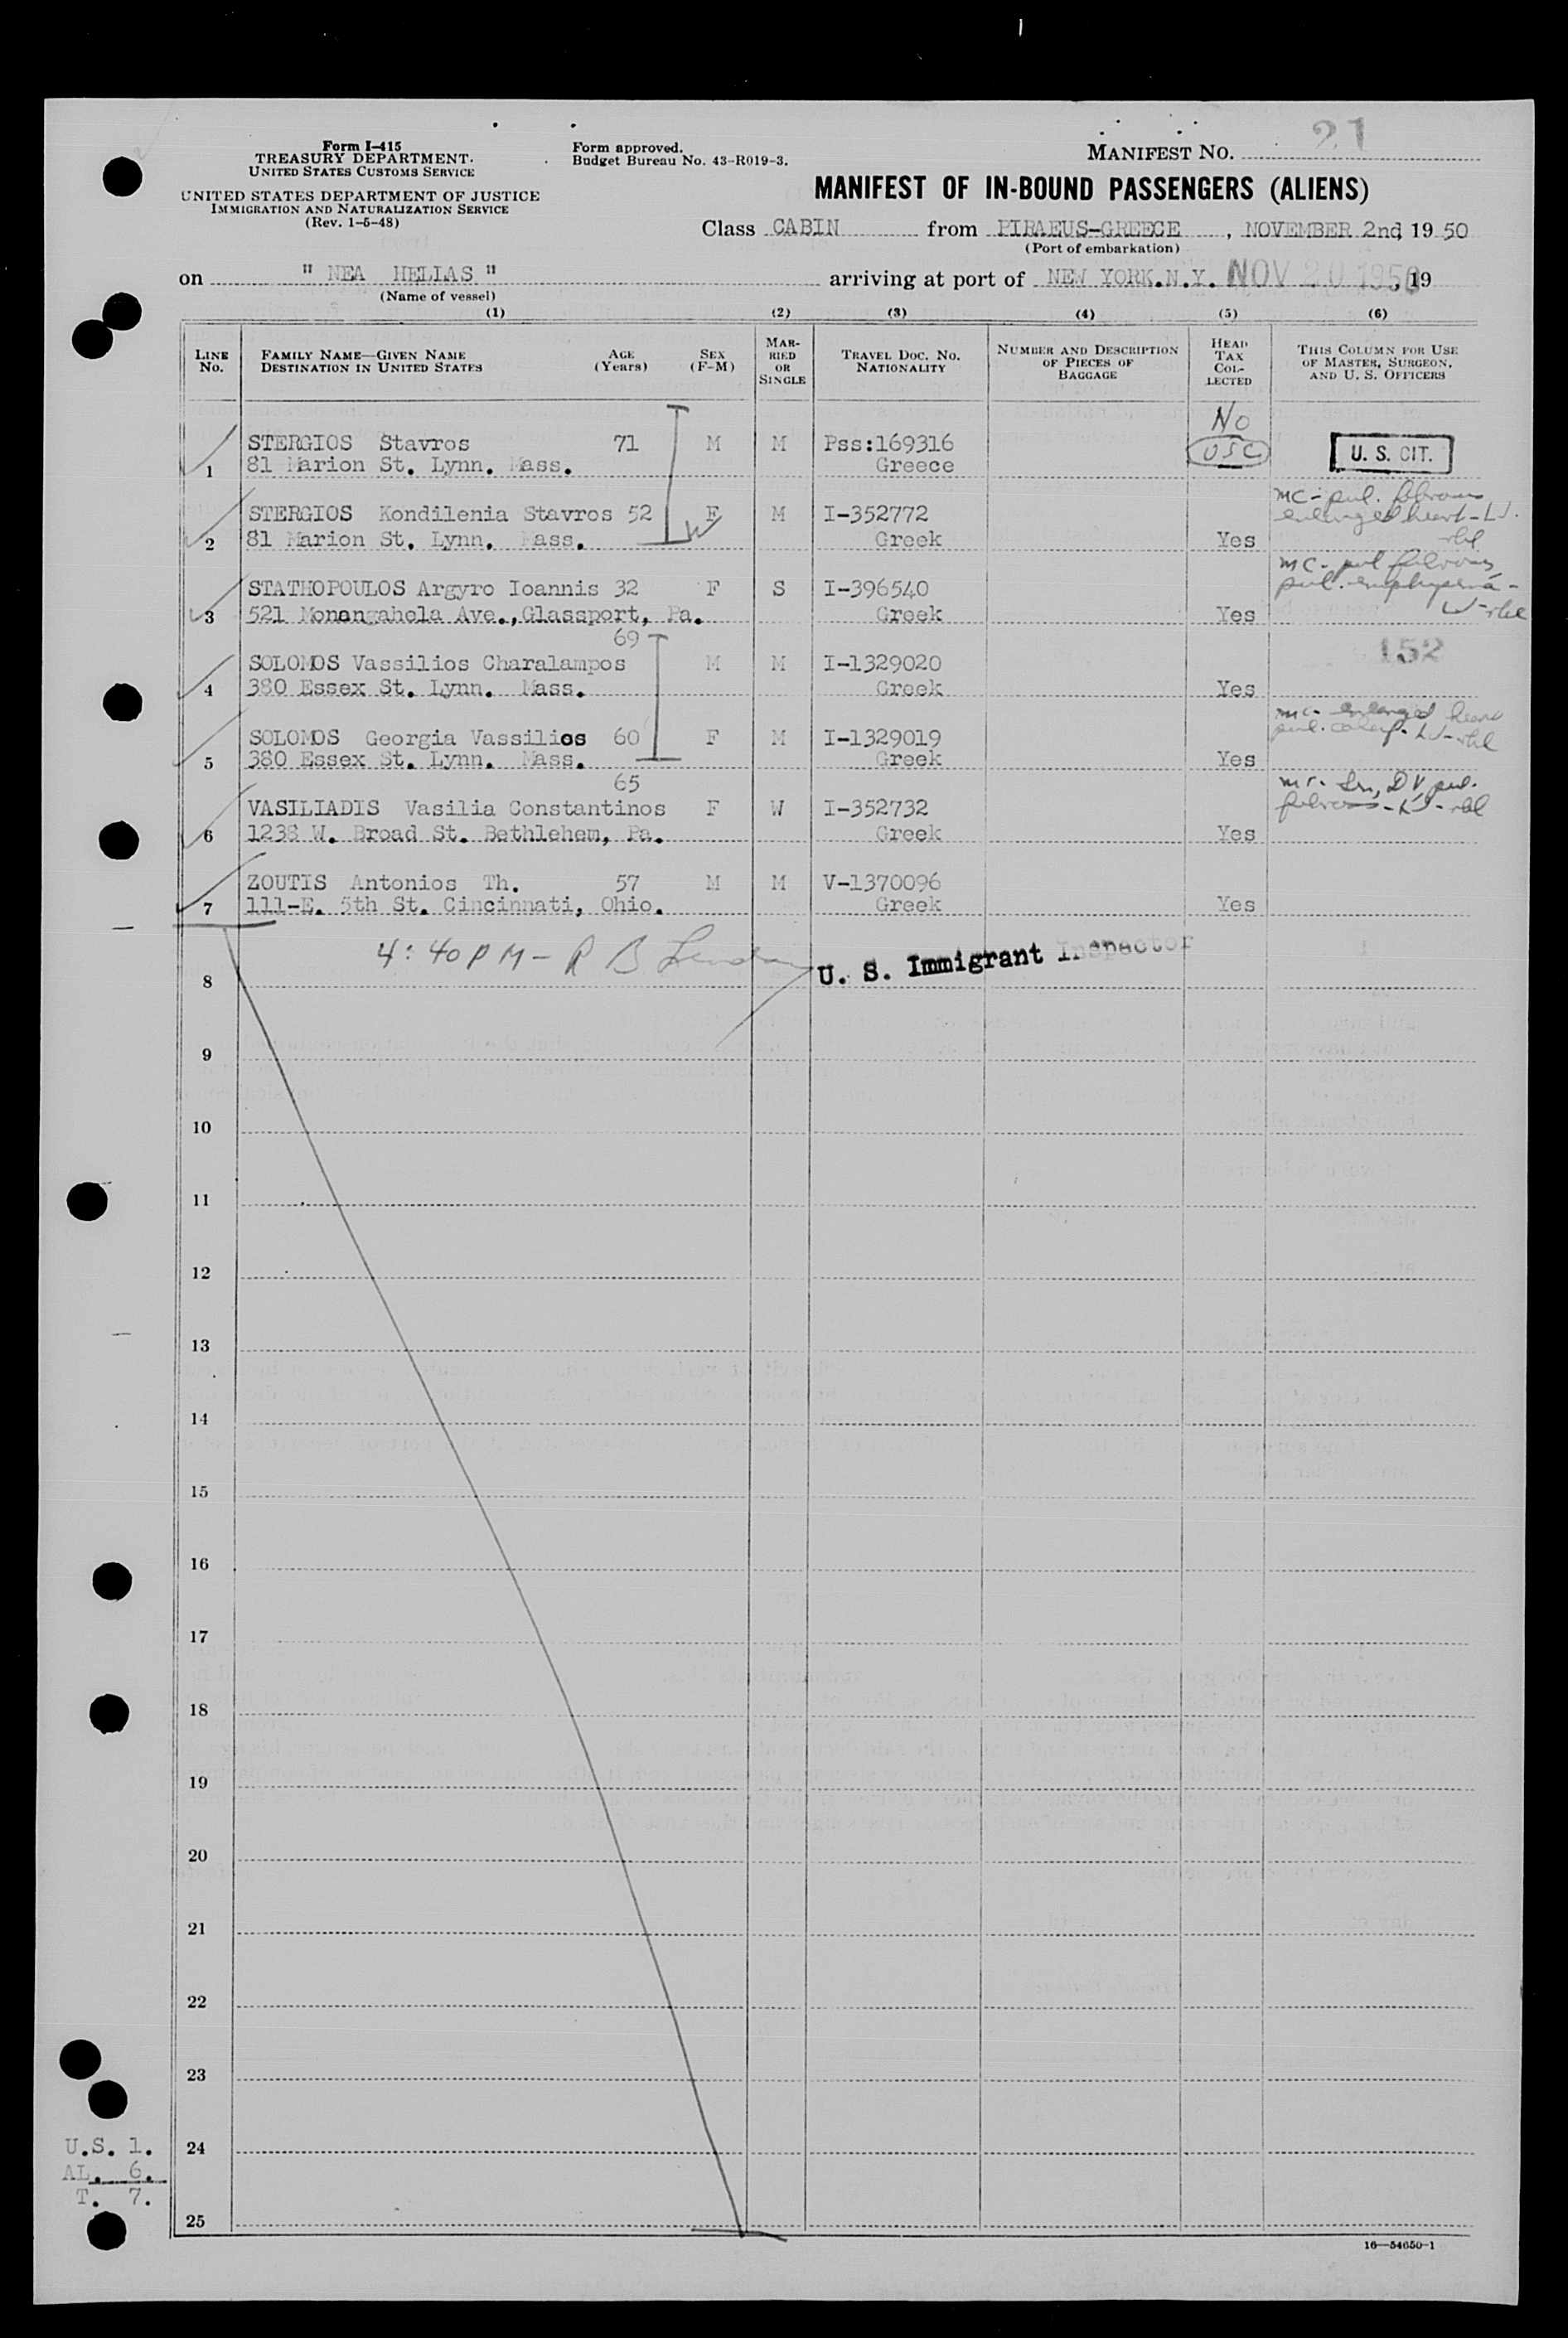 Form I-415
TREASURY DEPARTMENT.
UNITED STATES CUSTOMS SERVICE
UNITED STATES DEPARTMENT OF JUSTICE
IMMIGRATION AND NATURALIZATION SERVICE
(Rev. 1-5-48)
Form approved.
Budget Bureau No. 43-R019-3.
MANIFEST NO. 21
MANIFEST OF IN-BOUND PASSENGERS (ALIENS)
Class CABIN from PIRAEUS-GREECE, NOVEMBER 2nd, 19 50
(Port of embarkation)
on " NEA HELIAS " arriving at port of NEW YORK.N.Y. NOV 20 1950, 19
(Name of vessel)
(1) (2) (3) (4) (5) (6)
LINE No. FAMILY NAME—GIVEN NAME DESTINATION IN UNITED STATES AGE (Years) SEX (F-M) MARRIED OR SINGLE TRAVEL DOC. NO. NATIONALITY NUMBER AND DESCRIPTION OF PIECES OF BAGGAGE HEAD TAX COLLECTED THIS COLUMN FOR USE OF MASTER, SURGEON, AND U. S. OFFICERS
No
STERGIOS Stavros 71 M M Pss:169316 USC U. S. CIT.
1 81 Marion St. Lynn. Mass. Greece
mc - pul. fibrosis
STERGIOS Kondilenia Stavros 52 F W M I-352772 enlarged heart
2 81 Marion St. Lynn. Mass. Greek Yes
mc - pul fibrosis
STATHOPOULOS Argyro Ioannis 32 F S I-396540 pul. emphysema -
3 521 Monongahela Ave.,Glassport, Pa. Greek Yes
69
SOLOMOS Vassilios Charalampos M M I-1329020 152
4 380 Essex St. Lynn. Mass. Greek Yes
mc - enlarged heart
SOLOMOS Georgia Vassilios 60 F M I-1329019 pul.
5 380 Essex St. Lynn. Mass. Greek Yes
65
mc - Sen, DV, pul.
VASILIADIS Vasilia Constantinos F W I-352732 fibrosis
6 1238 W. Broad St. Bethlehem, Pa. Greek Yes
ZOUTIS Antonios Th. 57 M M V-1370096
7 111-E. 5th St. Cincinnati, Ohio. Greek Yes
4:40 PM - R B U. S. Immigrant Inspector
8
9
10
11
12
13
14
15
16
17
18
19
20
21
22
23
U.S. 1. 24
AL. 6.
T. 7.
25
16—54650-1